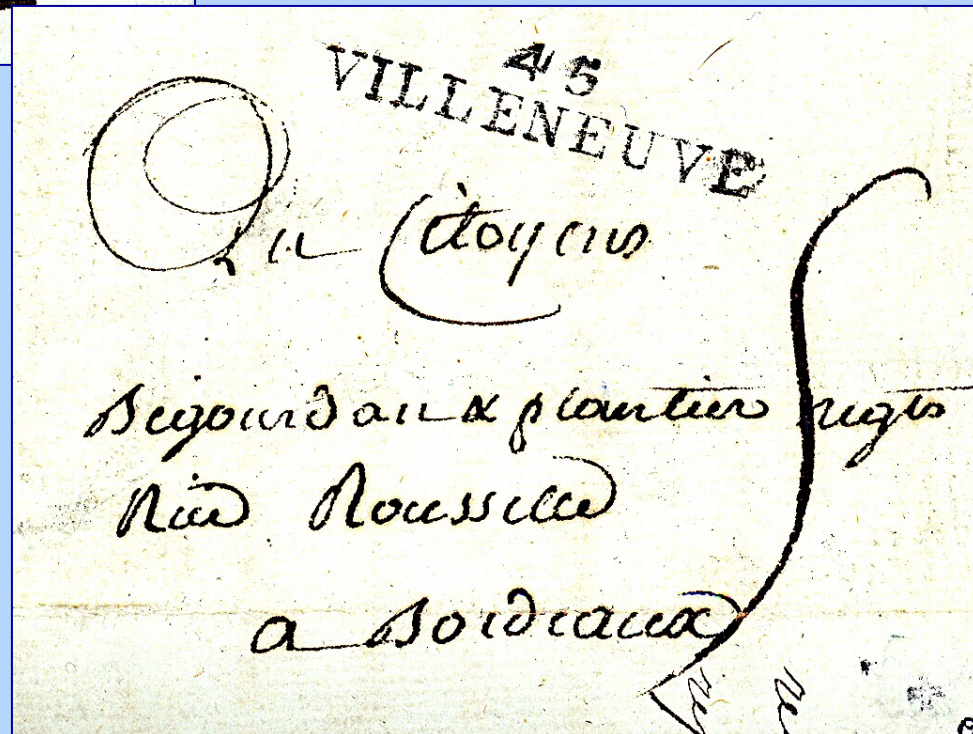 45
VILLENEUVE
Au Citoyens
Segourdan & plantier negts
Rue Rousselle
a Bordeaux